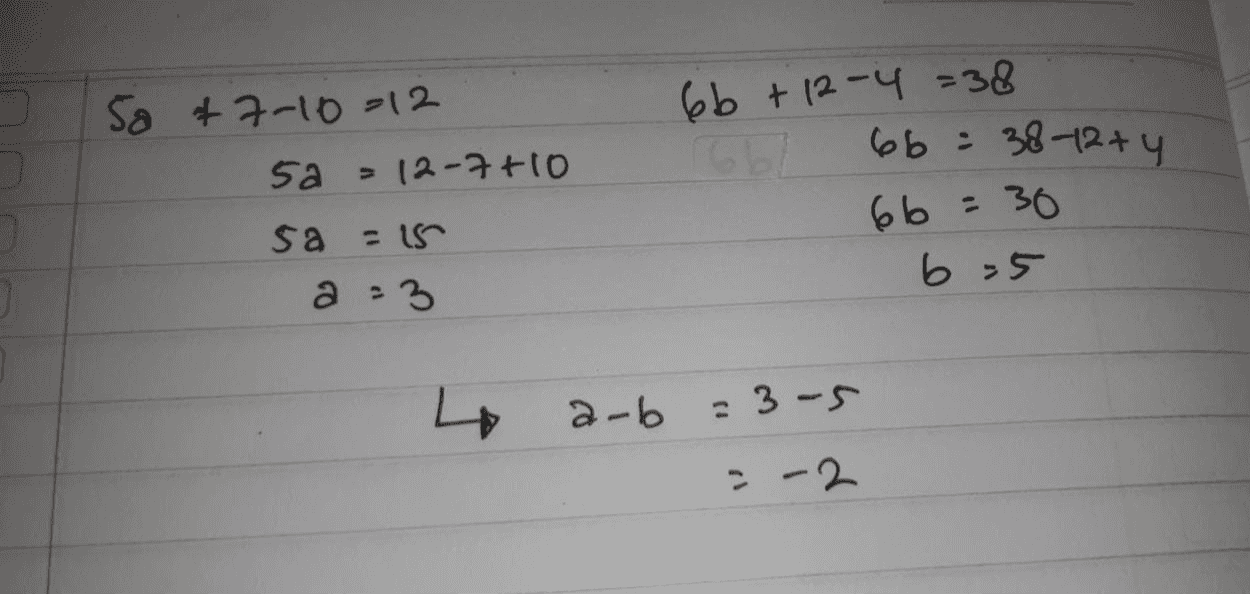 5a + 7-10 = 12
5a = 12-7+10
5a = 15
a = 3
6b + 12-4 = 38
6b
6b = 38-12+4
6b = 30
b = 5
↳ a-b = 3-5
= -2